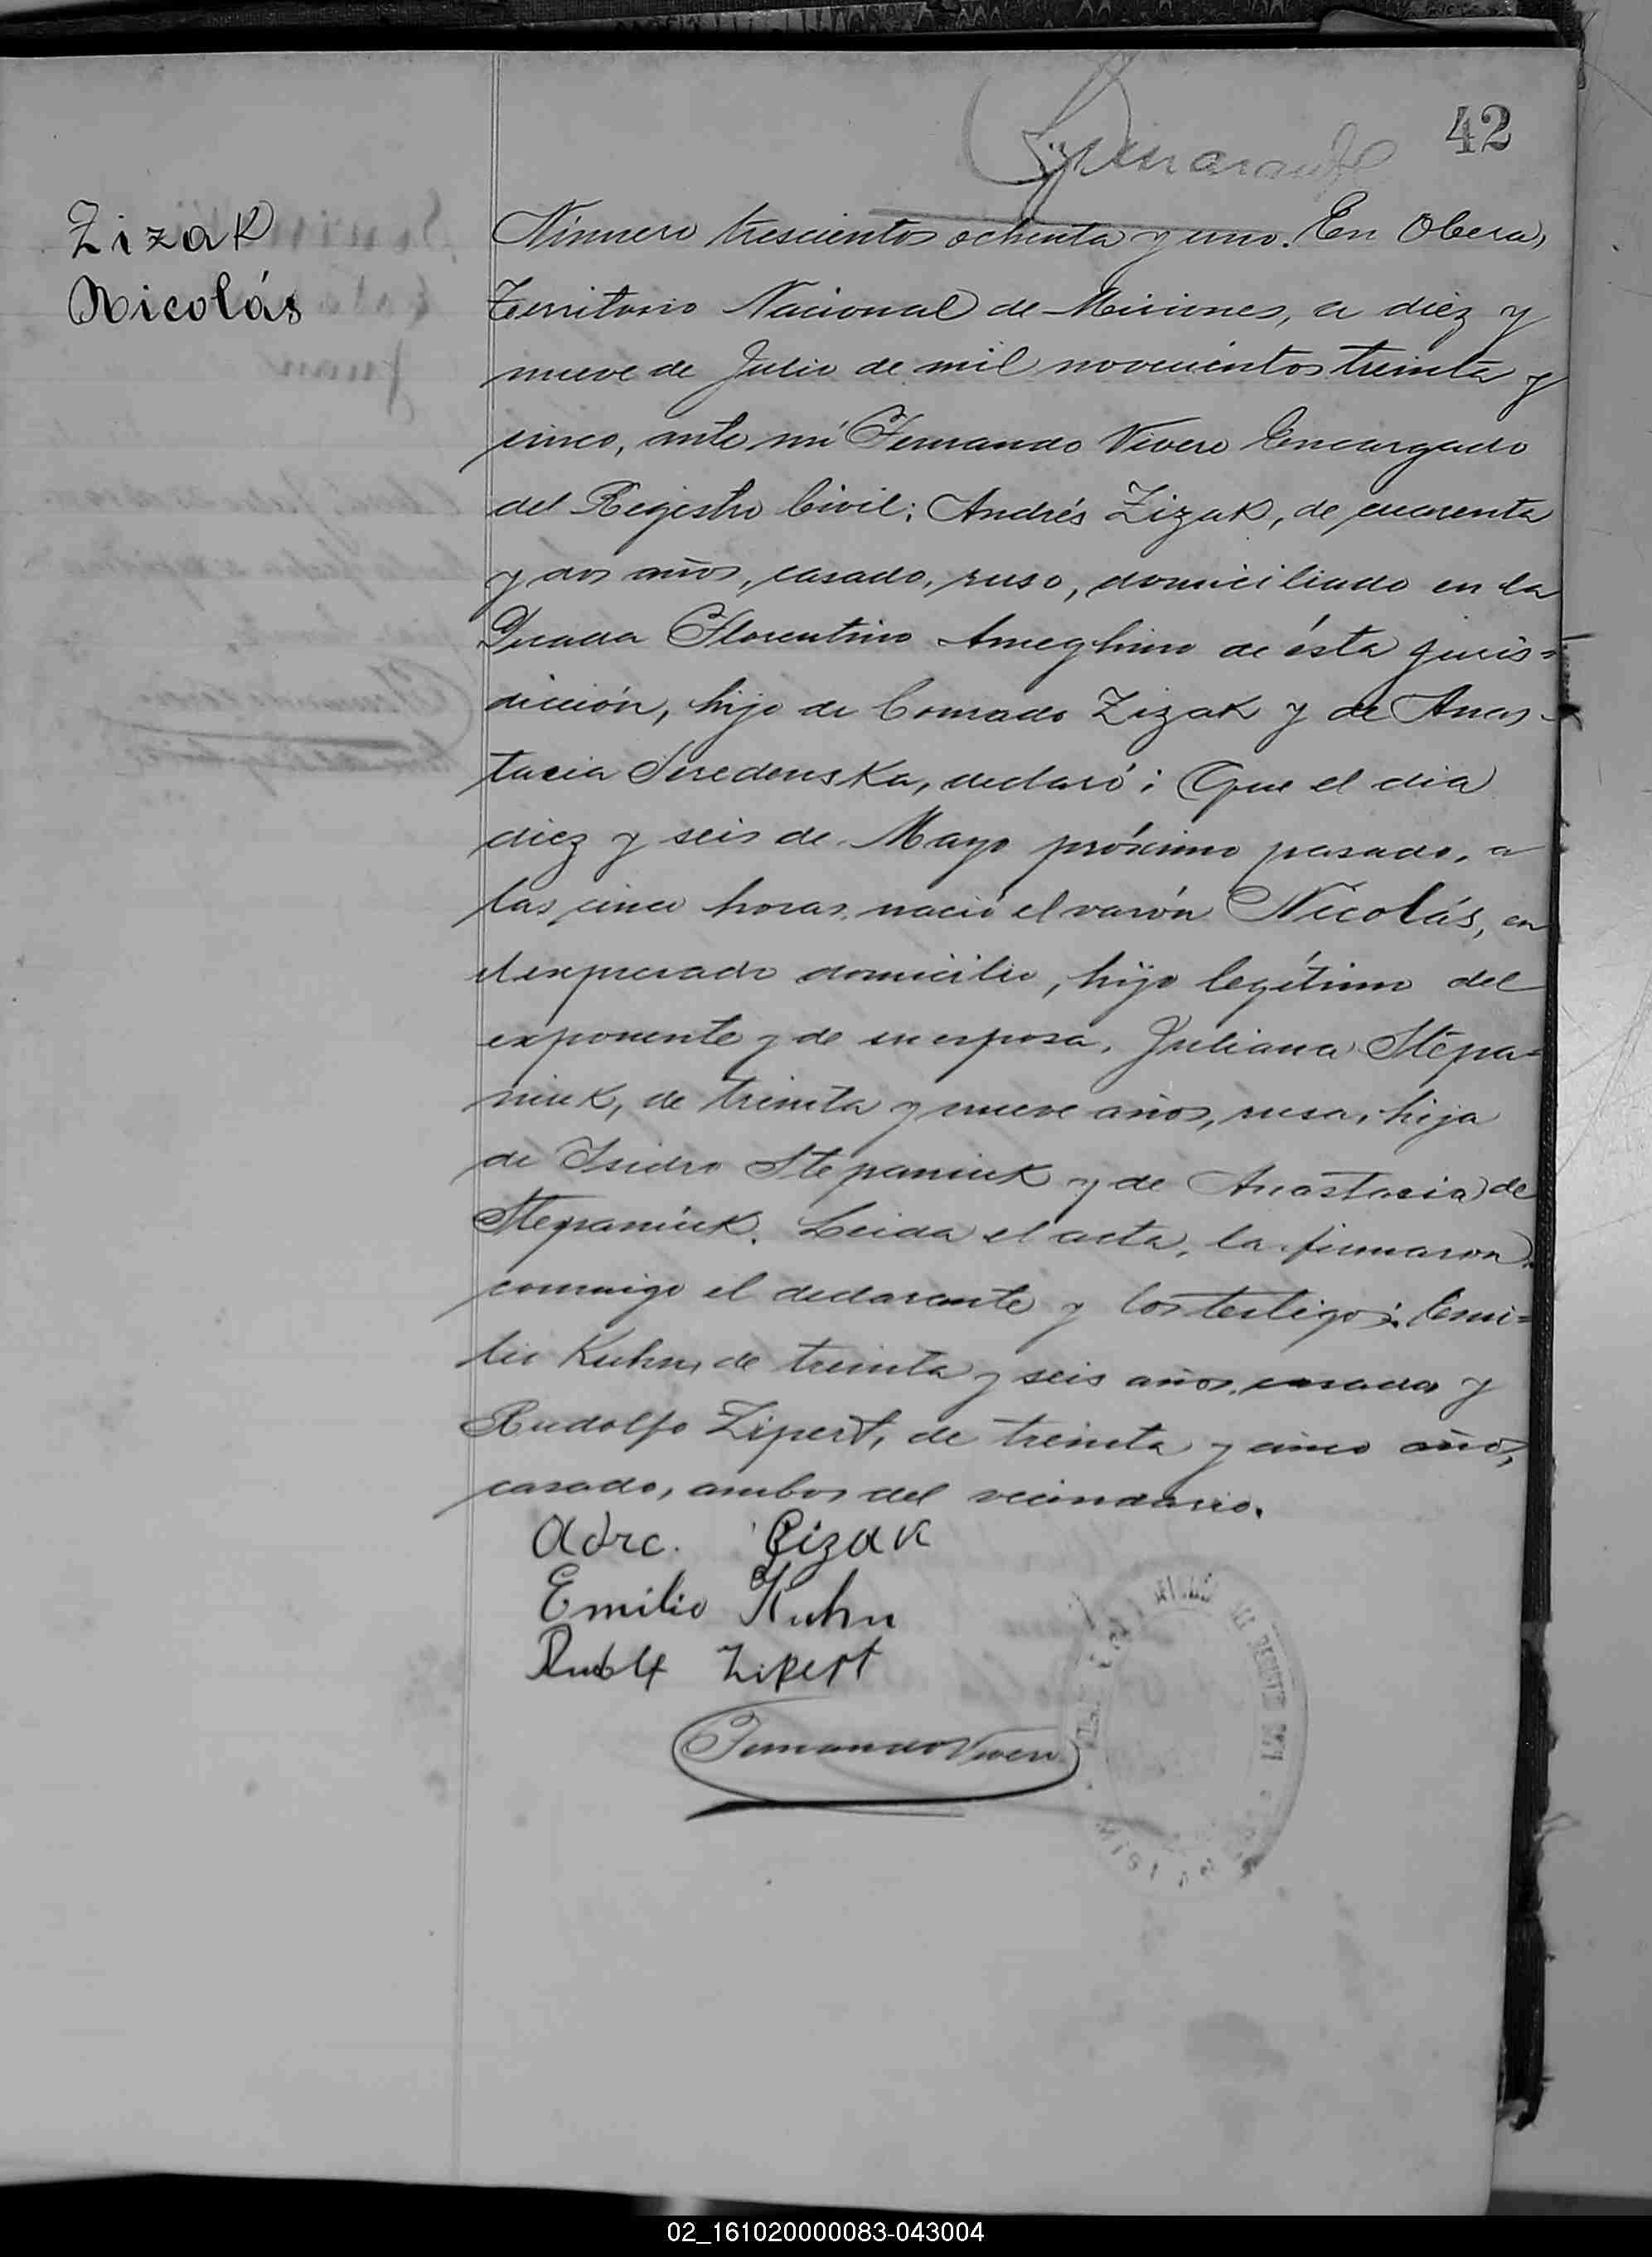 42
Zizak
Nicolás
Número trescientos ochenta y uno. En Obera,
Territorio Nacional de Misiones, a diez y
nueve de Julio de mil novecientos treinta y
cinco, ante mí Fernando Vivero Encargado
del Registro Civil; Andrés Zizak, de cuarenta
y dos años, casado, ruso, domiciliado en la
Picada Florentino Ameghino de ésta juris=
dicción, hijo de Conrado Zizak y de Anas-
tacia Seredenska, declaró: Que el dia
diez y seis de Mayo próximo pasado, a
las cinco horas, nació el varón Nicolás, en
el expresado domicilio, hijo legítimo del
exponente y de su esposa, Juliana Stepa=
niuk, de treinta y nueve años, rusa, hija
de Isidro Stepaniuk y de Anastacia de
Stepaniuk. Leida el acta, la firmaron
conmigo el declarante y los testigos: Emi=
lio Kuhn, de treinta y seis años, casado y
Rudolfo Zipert, de treinta y cinco años,
casado, ambos del vecindario.
Adrc. Cizak
Emilio Kuhn
Rudolf Zipert
Fernando Vivero
02_161020000083-043004